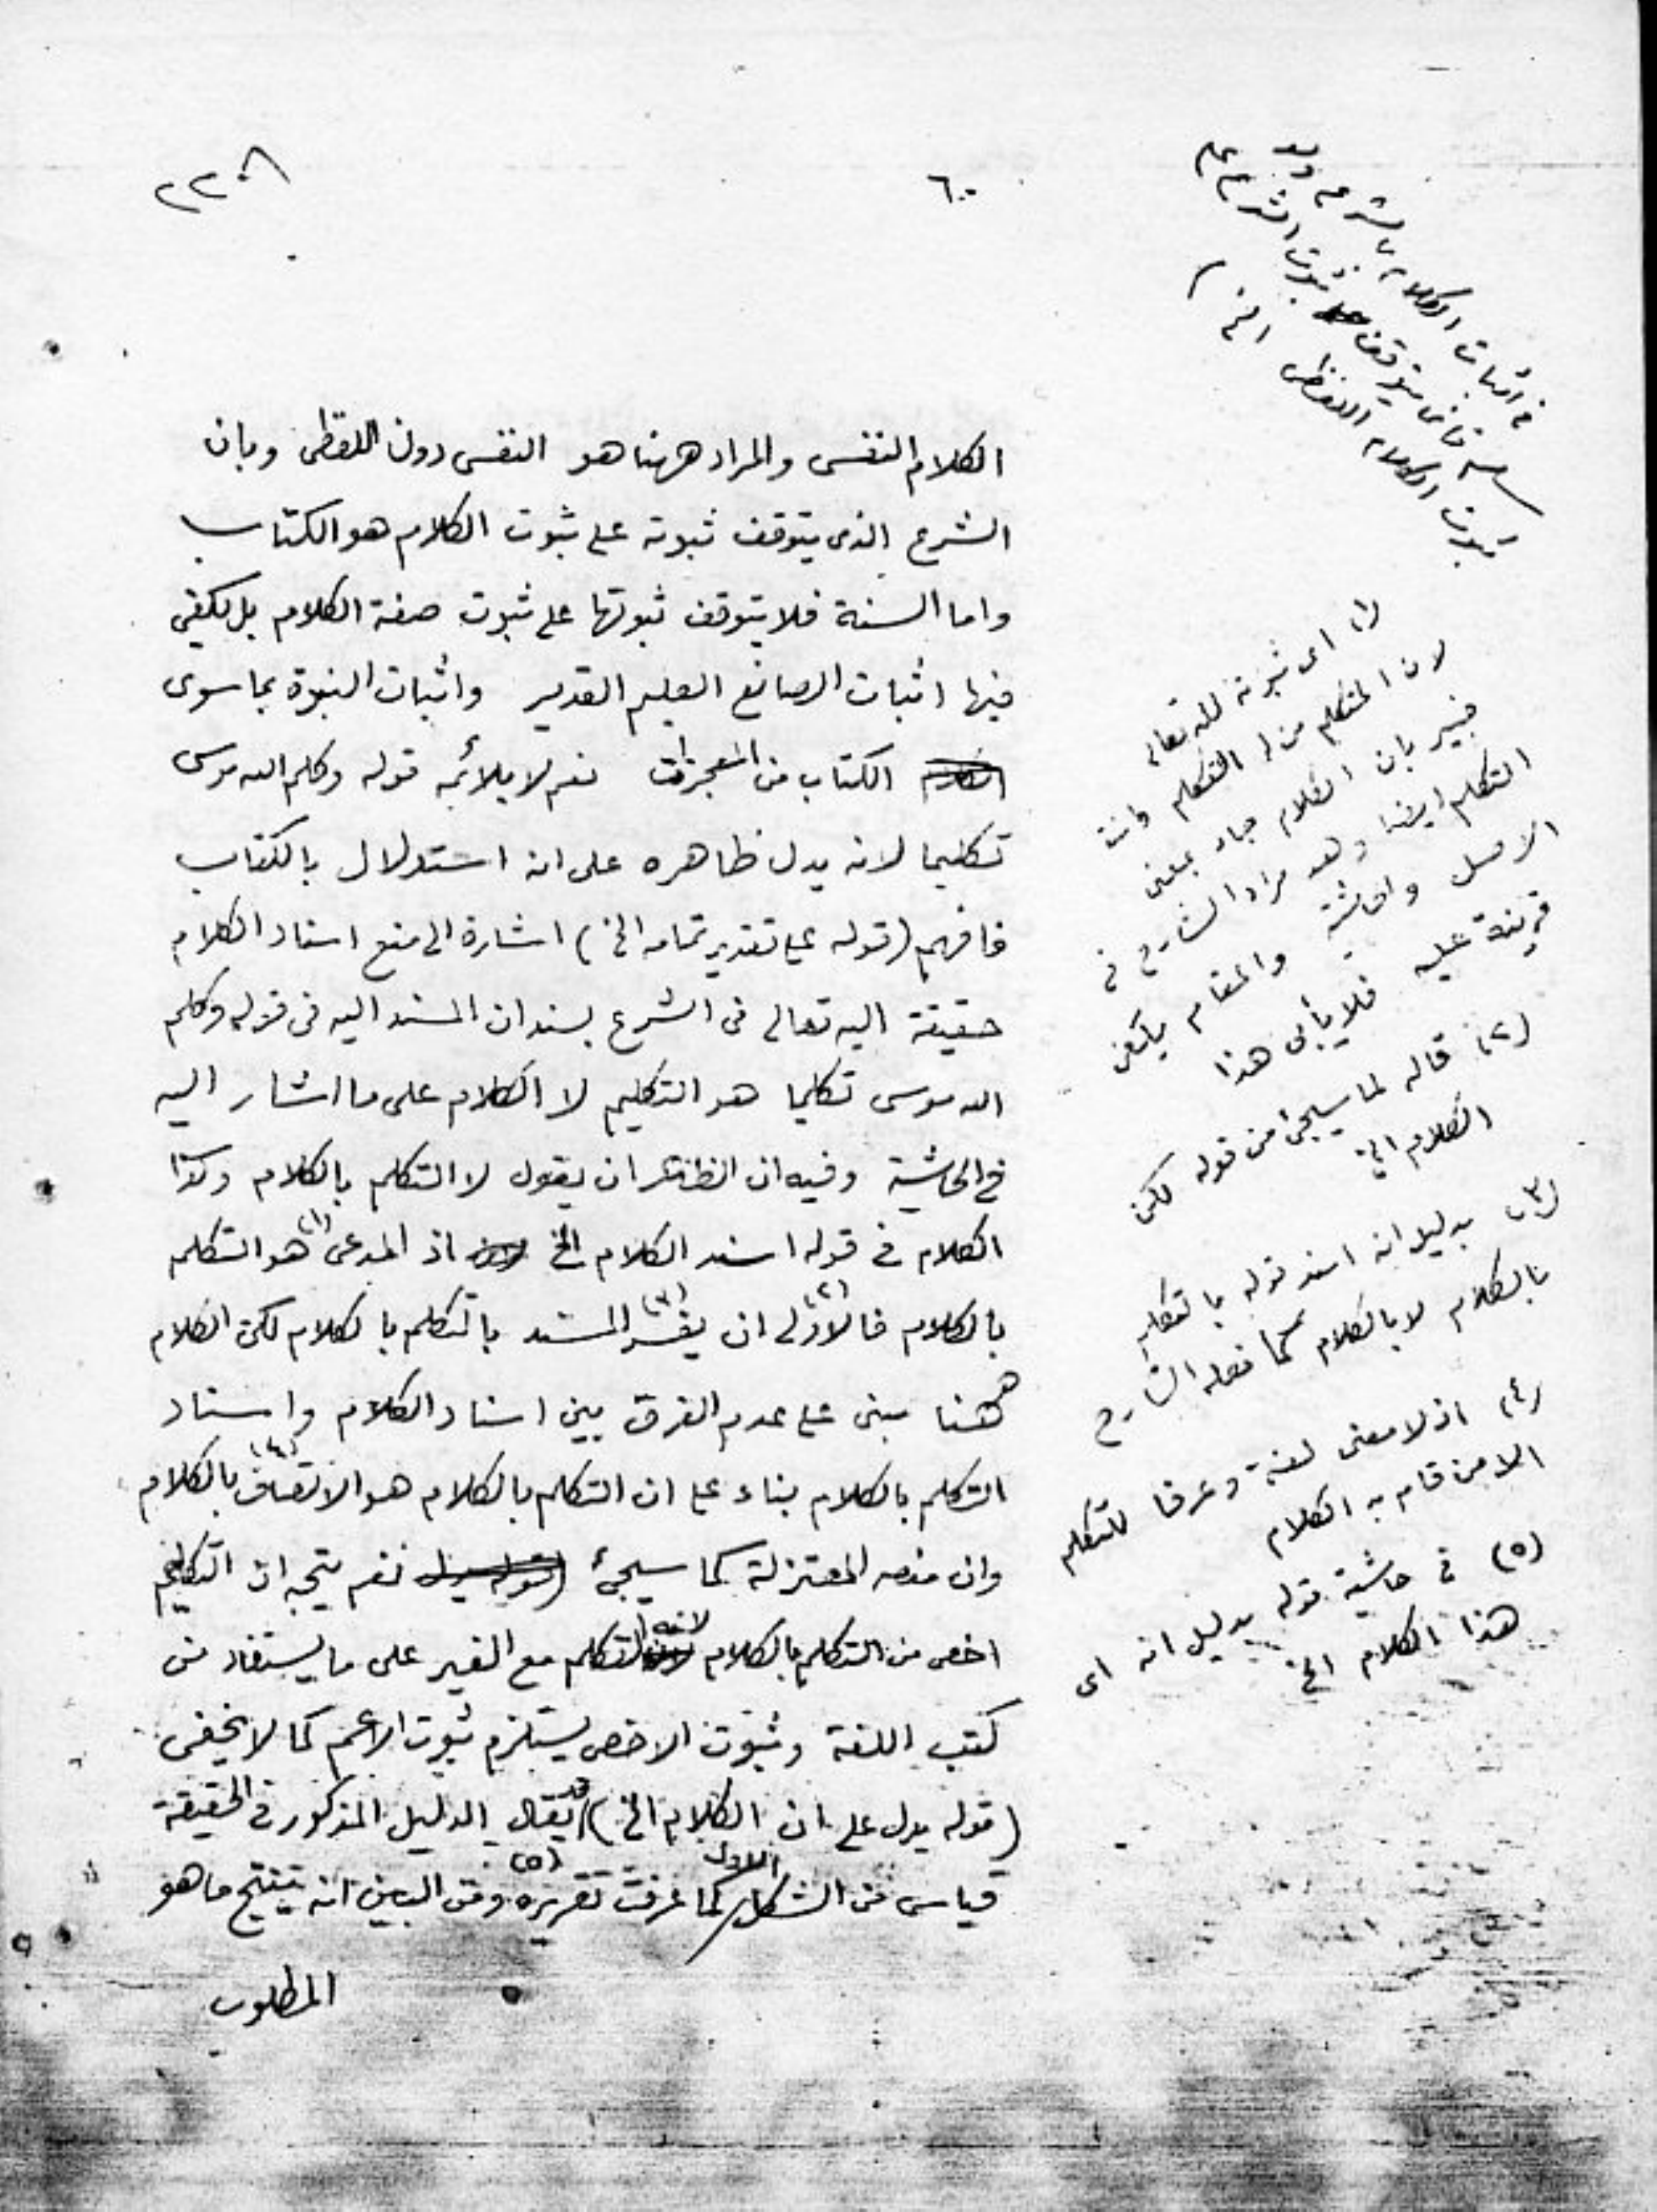 ٢٢٠٨
٦٠
الكلام النفسى والمراد ههنا هو النفسى دون اللفظى وبان
الشرع الذى يتوقف ثبوته على ثبوت الكلام هو الكتاب
واما السنة فلا يتوقف ثبوتها على ثبوت صفة الكلام بل يكفى
فيها اثبات الصانع العليم القدير واثبات النبوة بما سوى
الكتاب من المعجزات نعم لا يلائمه قوله وكلم الله موسى
تكليما لانه يدل ظاهره على انه استدلال بالكتاب
فافهم (قوله على تقدير تمامه الخ) اشارة الى منع اسناد الكلام
حقيقة اليه تعالى فى الشرع بسند ان المسند اليه فى قوله وكلم
الله موسى تكليما هو التكليم لا الكلام على ما اشار اليه
فى الحاشية وفيه ان الظاهر ان يقول لا التكلم بالكلام وكذا
الكلام فى قوله اسند الكلام الخ اذ المدعى (١) هو التكلم
بالكلام فالاولى (٢) ان يفسر (٣) المسند بالتكلم بالكلام لكن الكلام
ههنا مبنى على عدم الفرق بين اسناد الكلام واسناد
التكلم بالكلام بناء على ان التكلم بالكلام هو الاتصاف (٤) بالكلام
وان منعه المعتزلة كما سيجئ نعم يتجه ان التكليم
اخص من التكلم بالكلام لانه التكلم مع الغير على ما يستفاد من
كتب اللغة وثبوت الاخص يستلزم ثبوت الاعم كما لا يخفى
(قوله يدل على ان الكلام الخ) قد يقال الدليل المذكور فى الحقيقة
قياس من الشكل الاول كما عرفت تقريره (٥) ومن البين انه ينتج ما هو
المطلوب
فى اثبات الكلام بالشرع
يتوقف ثبوت الشرع على
ثبوت الكلام اللفظى الخ)
(١) اى ثبوته لله تعالى
لان المتكلم من له التكلم وانت
خبير بان الكلام جاء بمعنى
التكلم ايضا وهو مراد الشارح فى
الاصل والحاشية والمقام يكفى
قرينة عليه فلا يأبى هذا
(٢) قاله لما سيجئ من قوله لكن
الكلام الخ
(٣) بدليل انه اسند قوله بالتكلم
بالكلام لا بالكلام كما فعله الشارح
(٤) اذ لا معنى لغة وعرفا للمتكلم
الا من قام به الكلام
(٥) فى حاشية قوله بدليل انه اى
هذا الكلام الخ